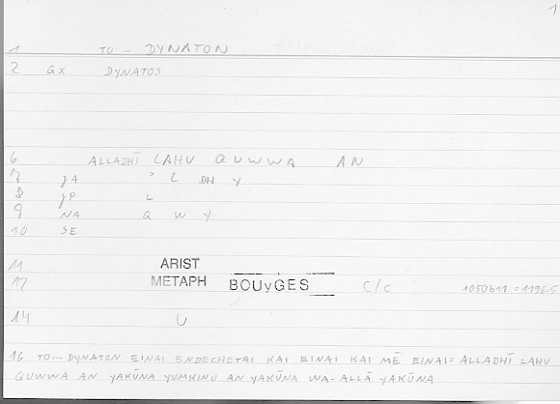 1
1 TO - DYNATON
2 GX DYNATOS
6 ALLADHĪ LAHU QUWWA AN
7 JA ʾ L DH Y
8 JP L
9 NA Q W Y
10 SE
11 ARIST
12 METAPH BOUyGES C/C 1050b11 = 1196.5
14 U
16 TO - DYNATON EINAI ENDECHETAI KAI EINAI KAI MĒ EINAI = ALLADHĪ LAHU
QUWWA AN YAKŪNA YUMKINU AN YAKŪNA WA-ALLĀ YAKŪNA